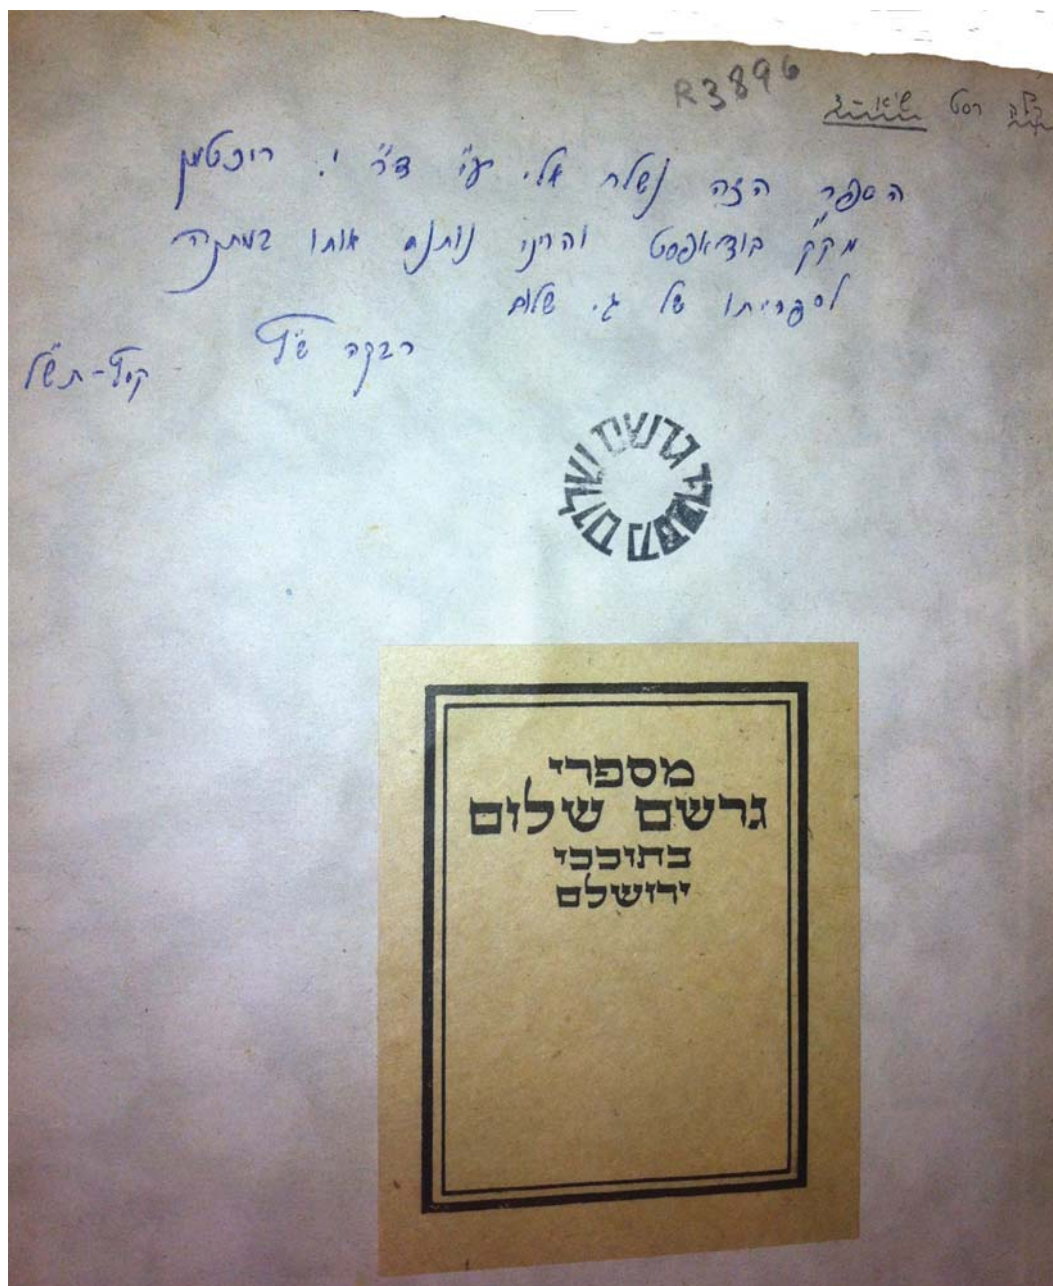 R3896
הספר הזה נשלח אלי ע"י ד"ר י.
מק"ק בודאפסט והריני נותנת אותו במתנה
לספריתו של ג. שלום
רבקה ש"ץ קיץ-תש"ל
מספרי גרשם שלום
מספרי
גרשם שלום
בתוככי
ירושלם